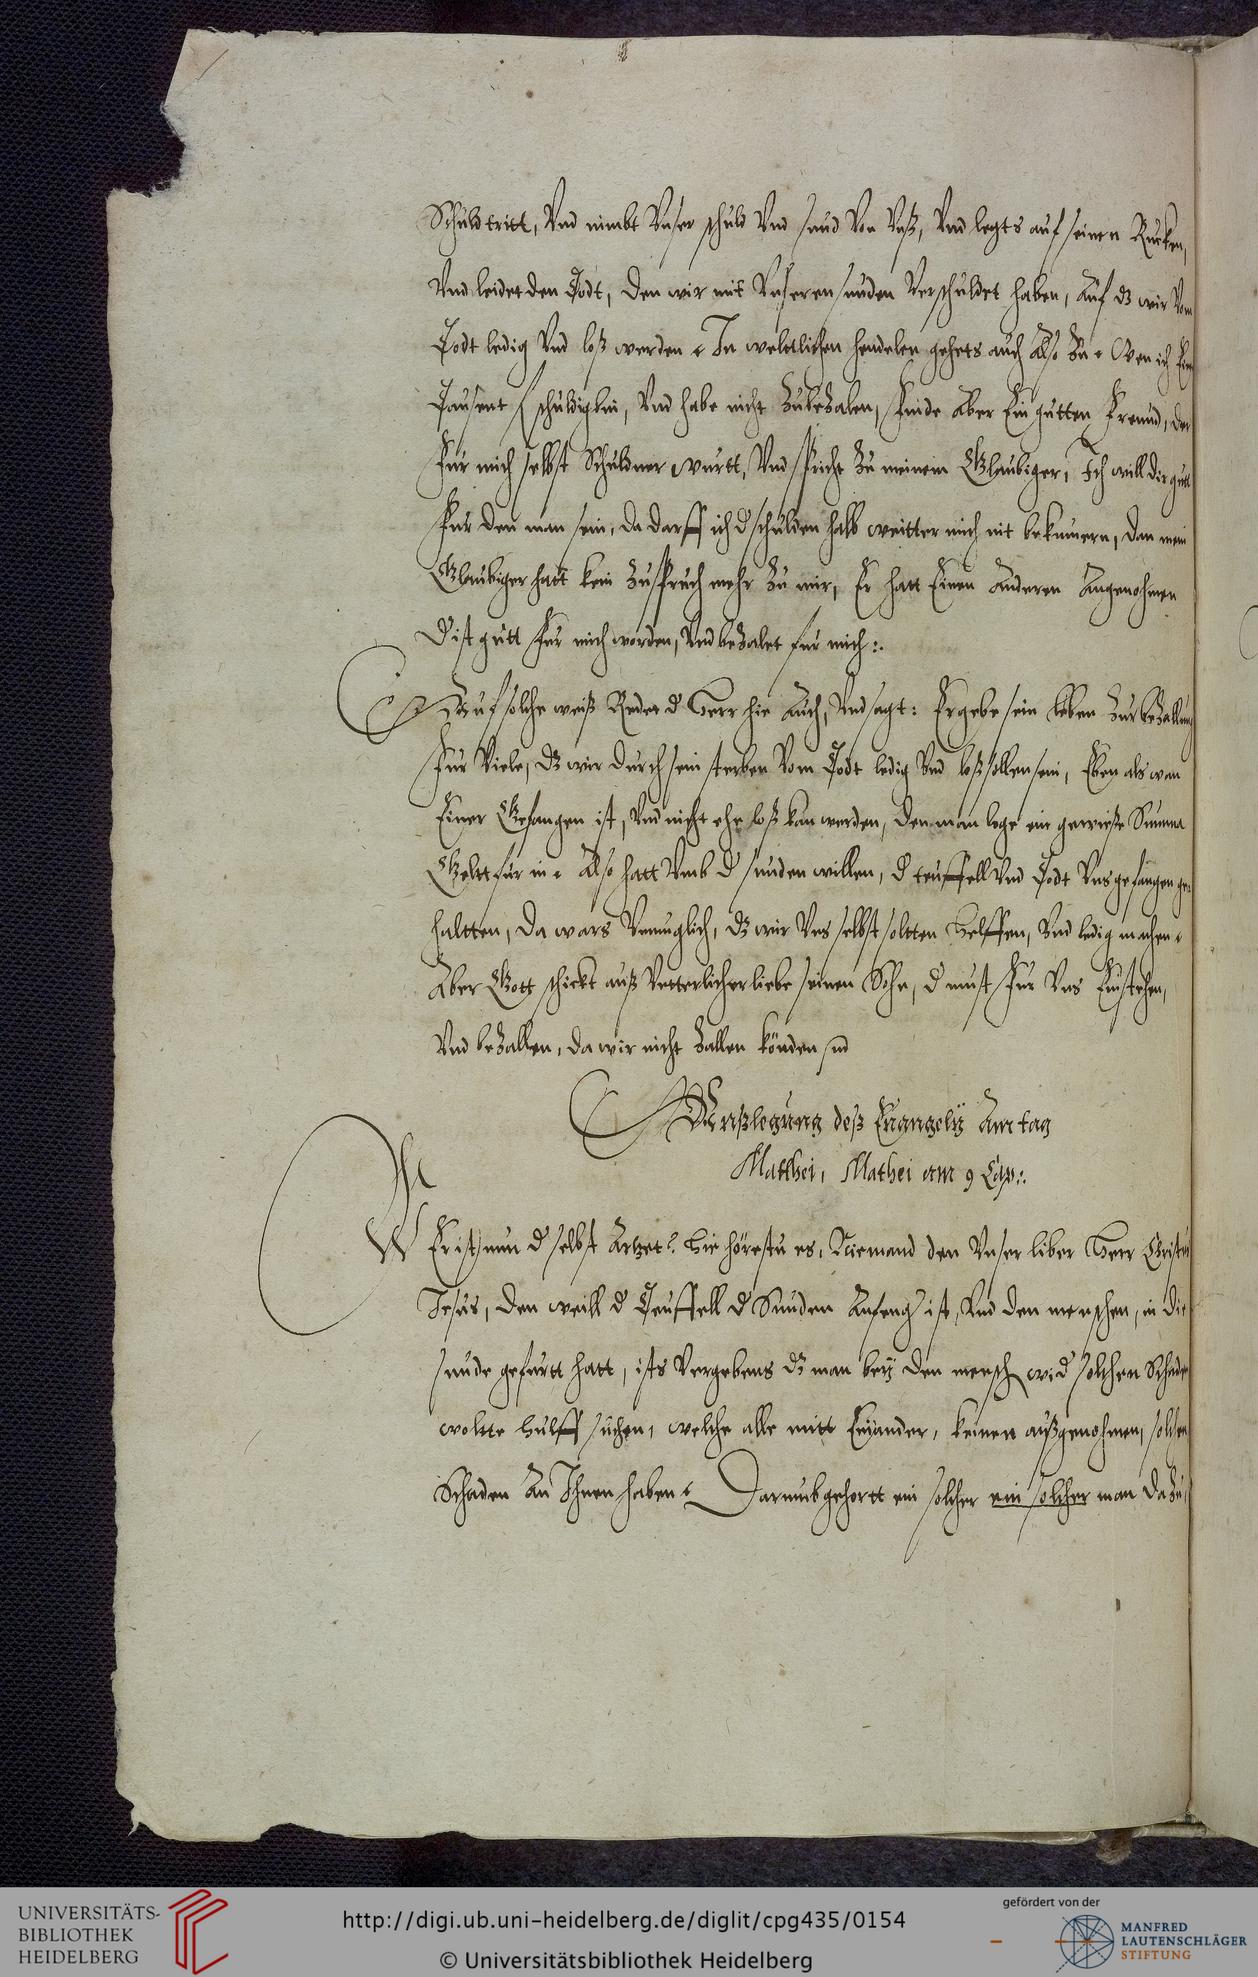 Schuld tritt, Vnd nimbt Vnser schuld Vnd sund Von Vnß, Vnd legts auf seinen Rucken,
Vnd leidet den Todt, den wir mit Vnseren sunden Verschuldet haben, Auf dz wir Vom
Todt ledig Vnd loß werden. In weltlichen hendelen gehets auch Also Zu. Wen ich
Tausent f schuldig bin, Vnd habe nicht Zubezalen, finde Aber Ein gutten Freund, der
für mich selbst Schuldner wurtt, Vnd spricht Zu meinem Glaubiger, Ich will dir gutt
für den man sein, da darff ich d schulden halb weitter mich nit bekumern, dan mein
Glaubiger hatt kein Zuspruch mehr Zu mir, Er hatt Einen Anderen Angenohmen
D ist gutt für mich worden, Vnd bezalet für mich:.
Auf solche weiß Redet d Herr hie Auch, Vnd sagt: Er gebe sein leben Zur bezallung
für Viele, dz wir durch sein sterben Vom Todt ledig Vnd loß sollen sein, Eben als wan
Einer Gefangen ist, Vnd nicht ehe loß kan werden, den man lege ein gewisse Summa
Geltt für in. Also hatt Vmb d sunden willen, d teuffell Vnd Todt Vns gefangen ge=
haltten, da wars Vnmuglich, dz wir Vns selbst soltten Helffen, Vnd ledig machen.
Aber Gott schickt auß Vetterlicher liebe seinen Sohn, d must für Vns Einstehen,
Vnd bezallen, da wir nicht Zallen könden
Außlegung deß Euangelÿ Am tag
Matthei, Mathei am 9 Cap:.
WEr ist nun d selbst Artzet? Hie hörestu es, Niemand den Vnser liber Herr Christus
Jesus, den weill d Teuffell d Sunden Anfeng ist, Vnd den menschen, in die
sunde gefurtt hatt, ists Vergebens dz man beÿ den mensch wid solchen Schaden
woltte hulff suchen, welche alle mitt Einander, keinen außgenohmen, solchen
Schaden An Ihnen haben. Darumb gehortt ein solcher ein solcher man dazu,
UNIVERSITÄTS-
BIBLIOTHEK
HEIDELBERG
http://digi.ub.uni-heidelberg.de/diglit/cpg435/0154
© Universitätsbibliothek Heidelberg
gefördert von der
MANFRED
LAUTENSCHLÄGER
STIFTUNG